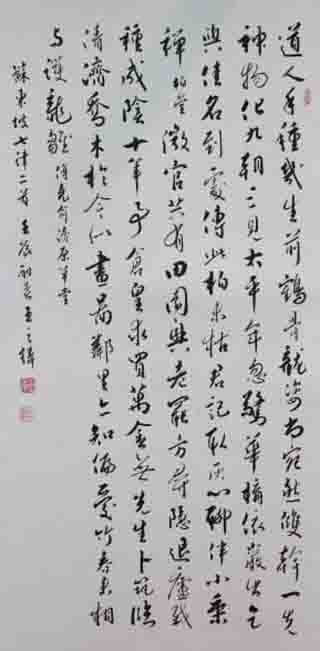 道人手種幾生前鶴骨龍姿尚宛然雙幹一先
神物化九朝三見太平年忽驚華構依巖出乞
與佳名到處傳此柏未枯君記取灰心聊伴小乘
禪 柏堂 微官共有田園興老罷方尋隱退廬栽
種成陰十年事倉皇求買萬金無先生卜筑臨
清濟喬木於今似畫圖鄰里亦知偏愛竹春來相
与護龍雛 傅堯俞濟源草堂
蘇東坡七律二首 壬辰初春王之